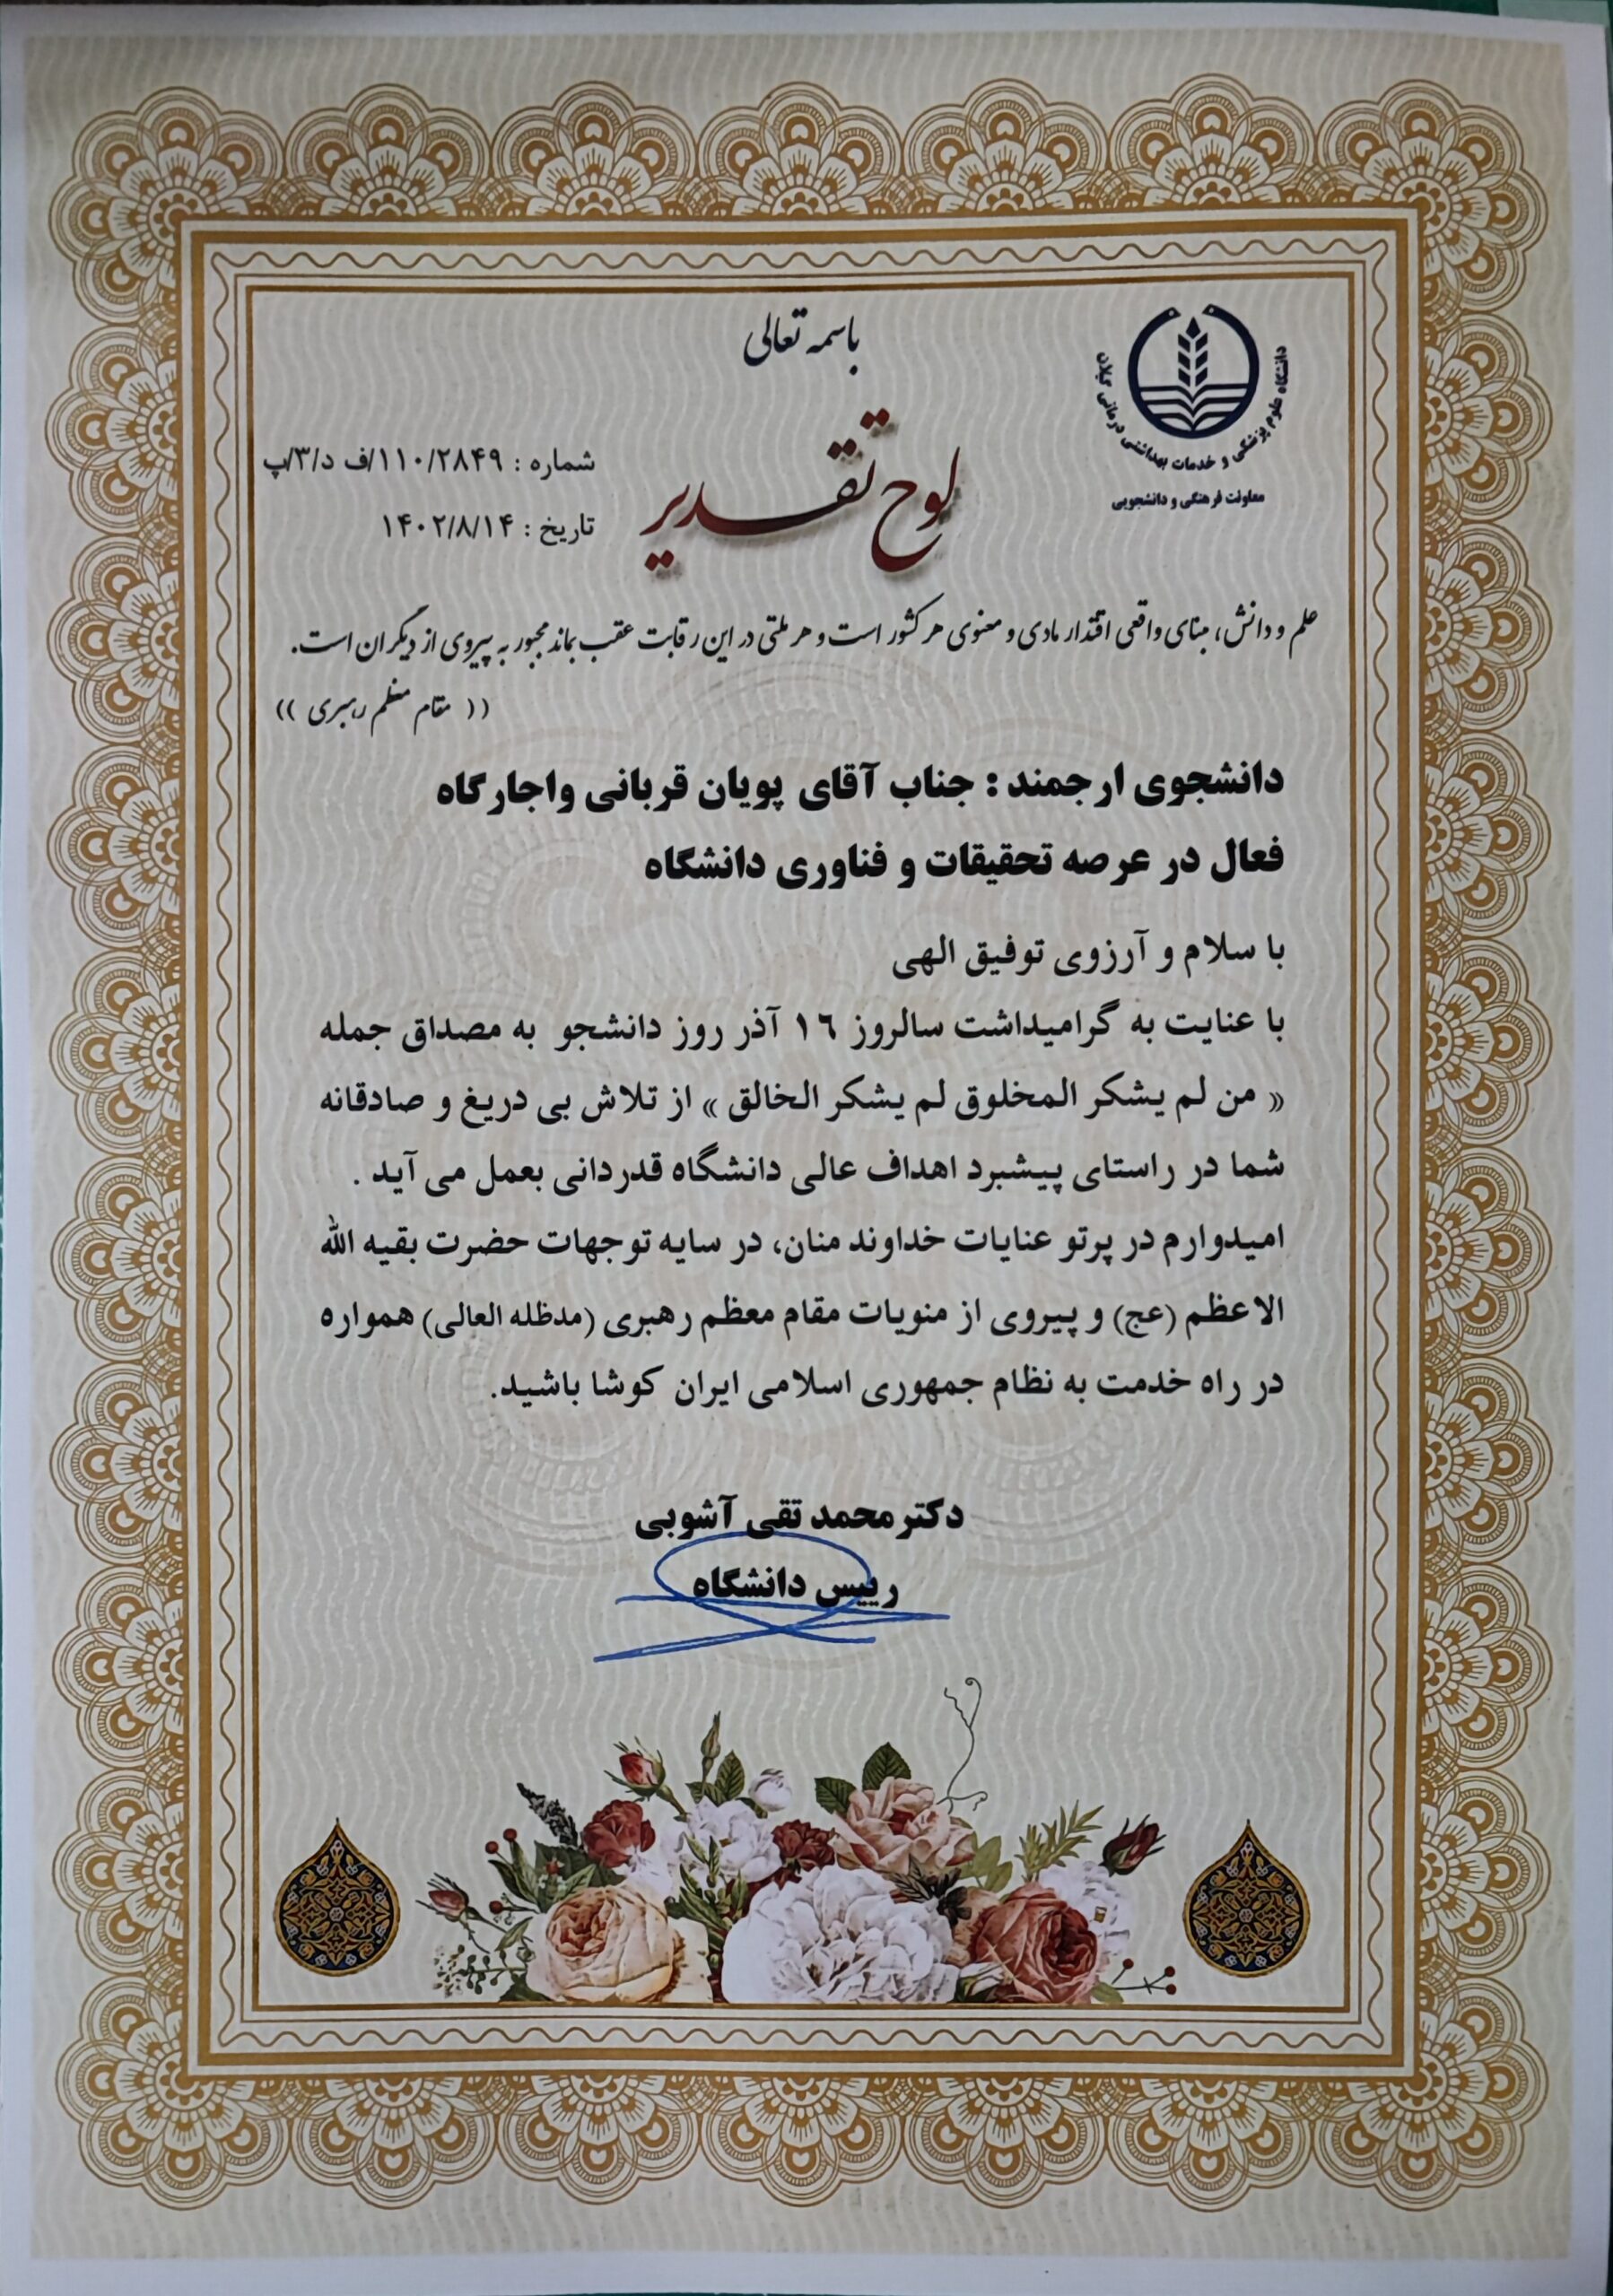 باسمه تعالی
دانشگاه علوم پزشکی و خدمات بهداشتی درمانی گیلان
معاونت فرهنگی و دانشجویی
لوح تقدیر
شماره : ۱۱۰/۲۸۴۹/ف د/۳/پ
تاریخ : ۱۴۰۲/۸/۱۴
علم و دانش، مبنای واقعی اقتدار مادی و معنوی هر کشور است و هر ملتی در این رقابت عقب بماند مجبور به پیروی از دیگران است.
(( مقام معظم رهبری ))
دانشجوی ارجمند : جناب آقای پویان قربانی واجارگاه
فعال در عرصه تحقیقات و فناوری دانشگاه
با سلام و آرزوی توفیق الهی
با عنایت به گرامیداشت سالروز ١٦ آذر روز دانشجو به مصداق جمله
« من لم یشکر المخلوق لم یشکر الخالق » از تلاش بی دریغ و صادقانه
شما در راستای پیشبرد اهداف عالی دانشگاه قدردانی بعمل می آید .
امیدوارم در پرتو عنایات خداوند منان، در سایه توجهات حضرت بقیه الله
الاعظم (عج) و پیروی از منویات مقام معظم رهبری (مدظله العالی) همواره
در راه خدمت به نظام جمهوری اسلامی ایران کوشا باشید.
دکتر محمد تقی آشوبی
رییس دانشگاه